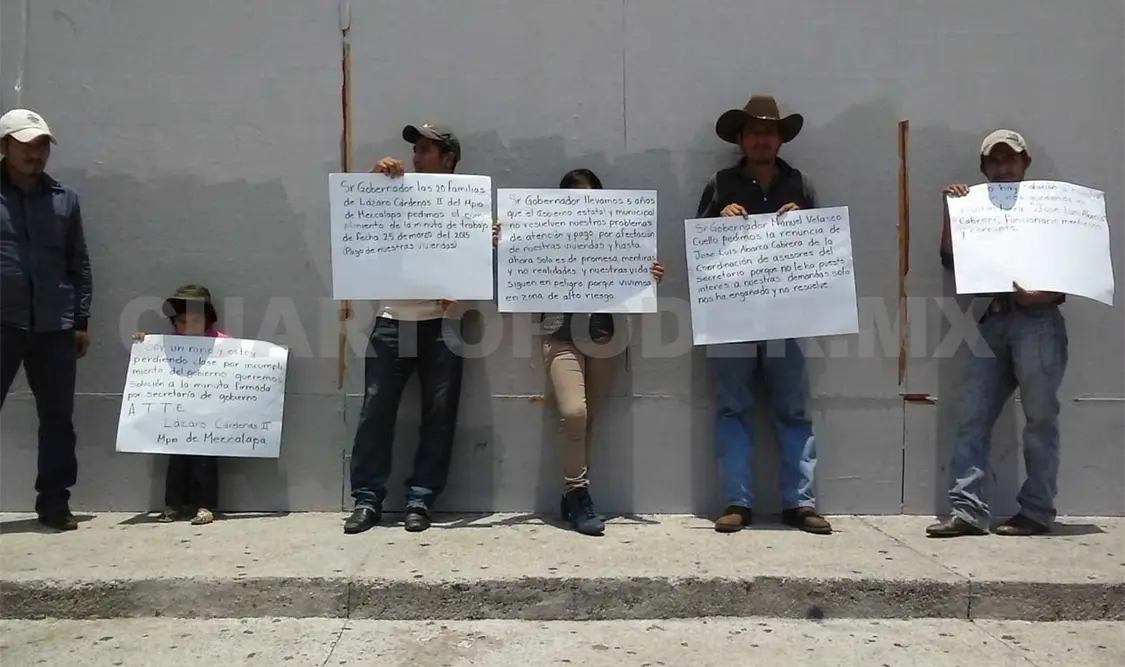 Soy un niño y estoy
perdiendo clase por incumpli
miento del gobierno queremos
solución a la minuta firmada
por secretaría de gobierno
ATTE
Lázaro Cárdenas II
Mpio de Mezcalapa
Sr Gobernador las 20 familias
de Lázaro Cárdenas II del Mpio
de Mezcalapa pedimos el cum
plimiento de la minuta de trabajo
de fecha 25 de marzo del 2015
(Pago de nuestras viviendas)
Sr Gobernador llevamos 5 años
que el Gobierno estatal y municipal
no resuelven nuestros problemas
de atención y pago por afectación
de nuestras viviendas y hasta
ahora solo es de promesa, mentiras
y no realidades y nuestras vida
siguen en peligro porque vivimos
en zona de alto riesgo.
Sr Gobernador Manuel Velasco
Cuello pedimos la renuncia de
Jose Luis Abarca Cabrera de la
Coordinación de asesores del
secretario porque no le ha puesto
interés a nuestras demandas solo
nos ha engañado y no resuelve.
hay solución a
Jose Luis Abarca
Cabrera, funcionario mentiroso
y corrupto.
CUARTOPODER.MX